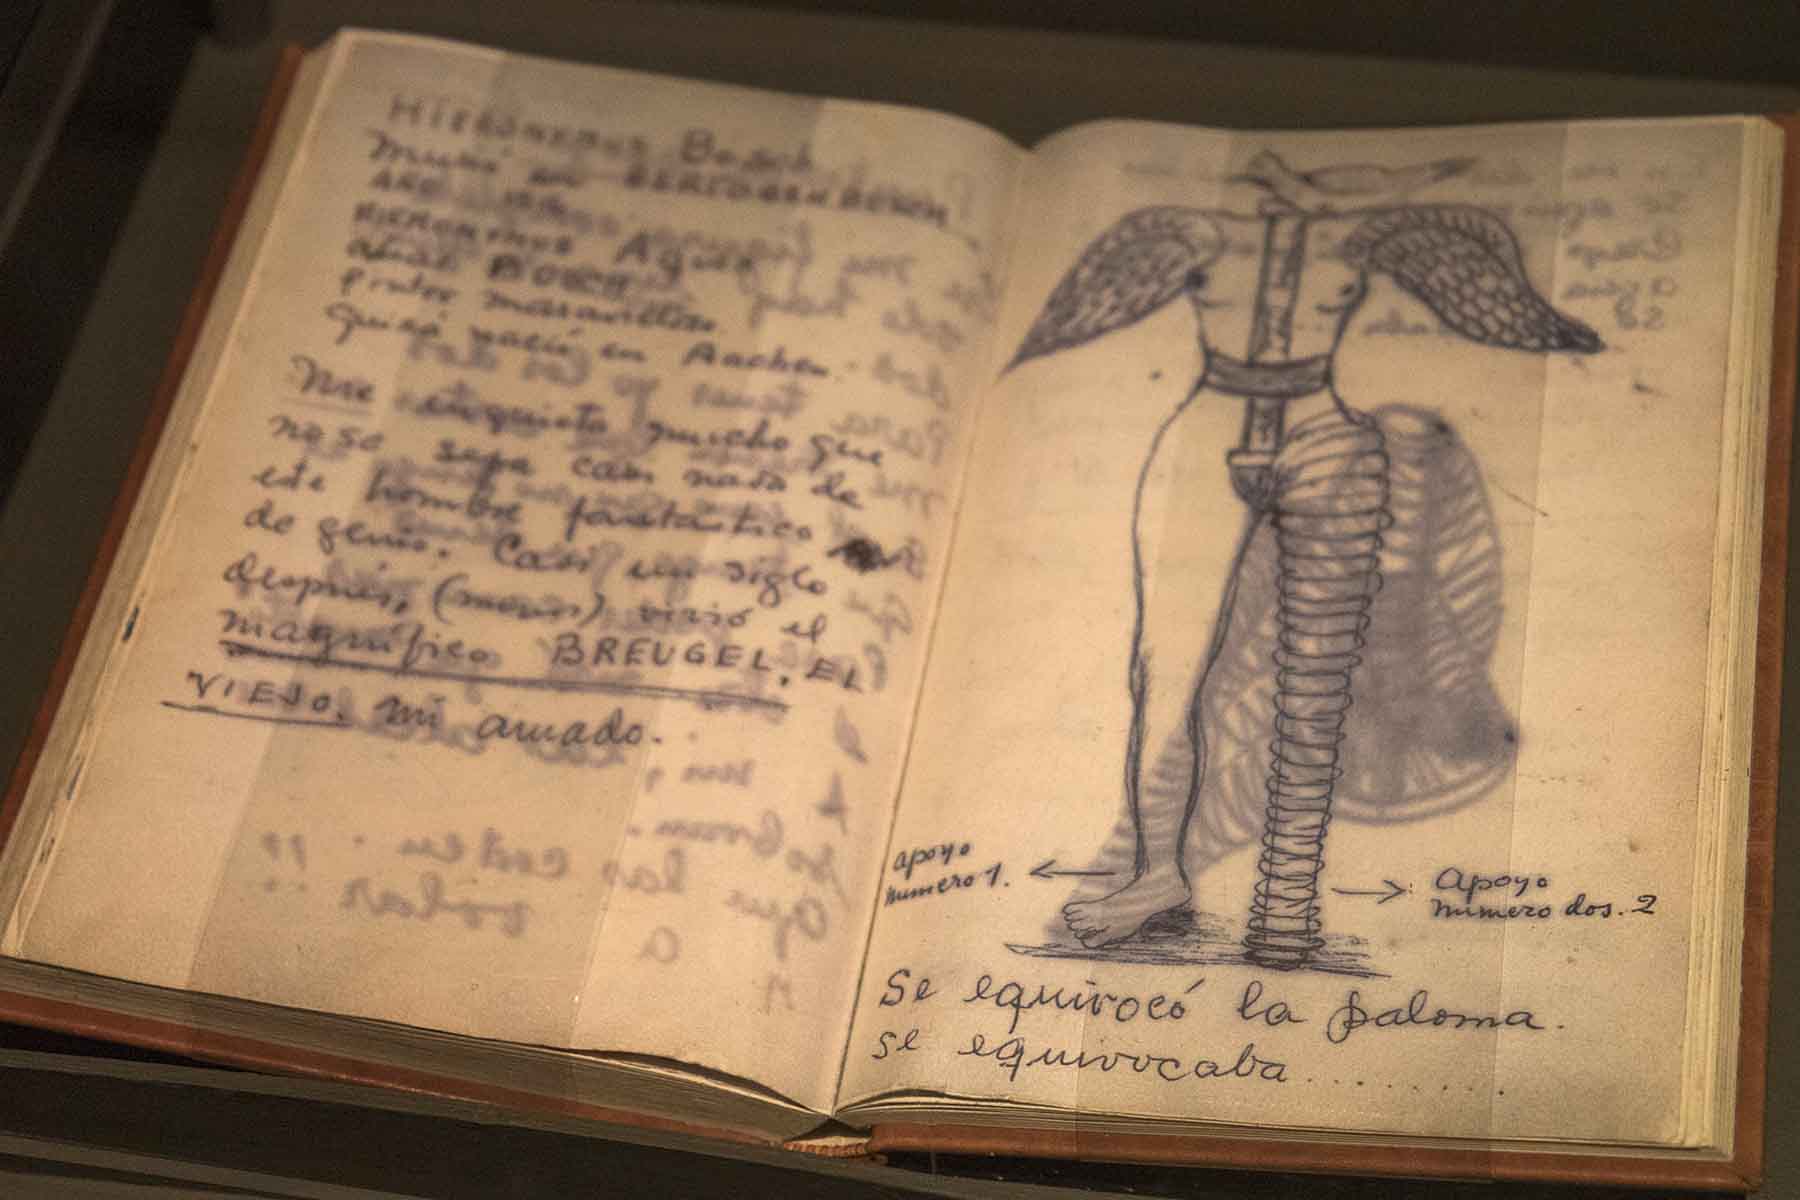 Hieronymus Bosch
Murió en HERTOGENBOSCH
AÑO
HIERONYMUS Aquen
alias BOSCH
Pintor maravilloso
Quizá nació en Aachen.
Me inquieta mucho que
no se sepa casi nada de
este hombre fantástico
de genio. Casi un siglo
después, (menos) vivió el
magnífico BREUGEL, EL
VIEJO, mi amado.
apoyo
número 1.
Apoyo
número dos. 2
Se equivocó la paloma.
se equivocaba.........